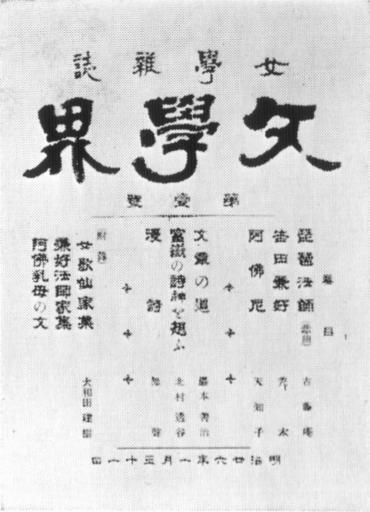 女學雜誌
文學界
第壹號
要目
琵琶法師 (悲曲) 古藤庵
吉田兼好 禿木
阿佛尼 天知子
文章の道 巖本善治
富嶽の詩神を想ふ 北村透谷
漫詩 無聲
附錄
女歌仙家集 大和田建樹
兼好法師家集
阿佛乳母の文
明治廿六年一月三十一日